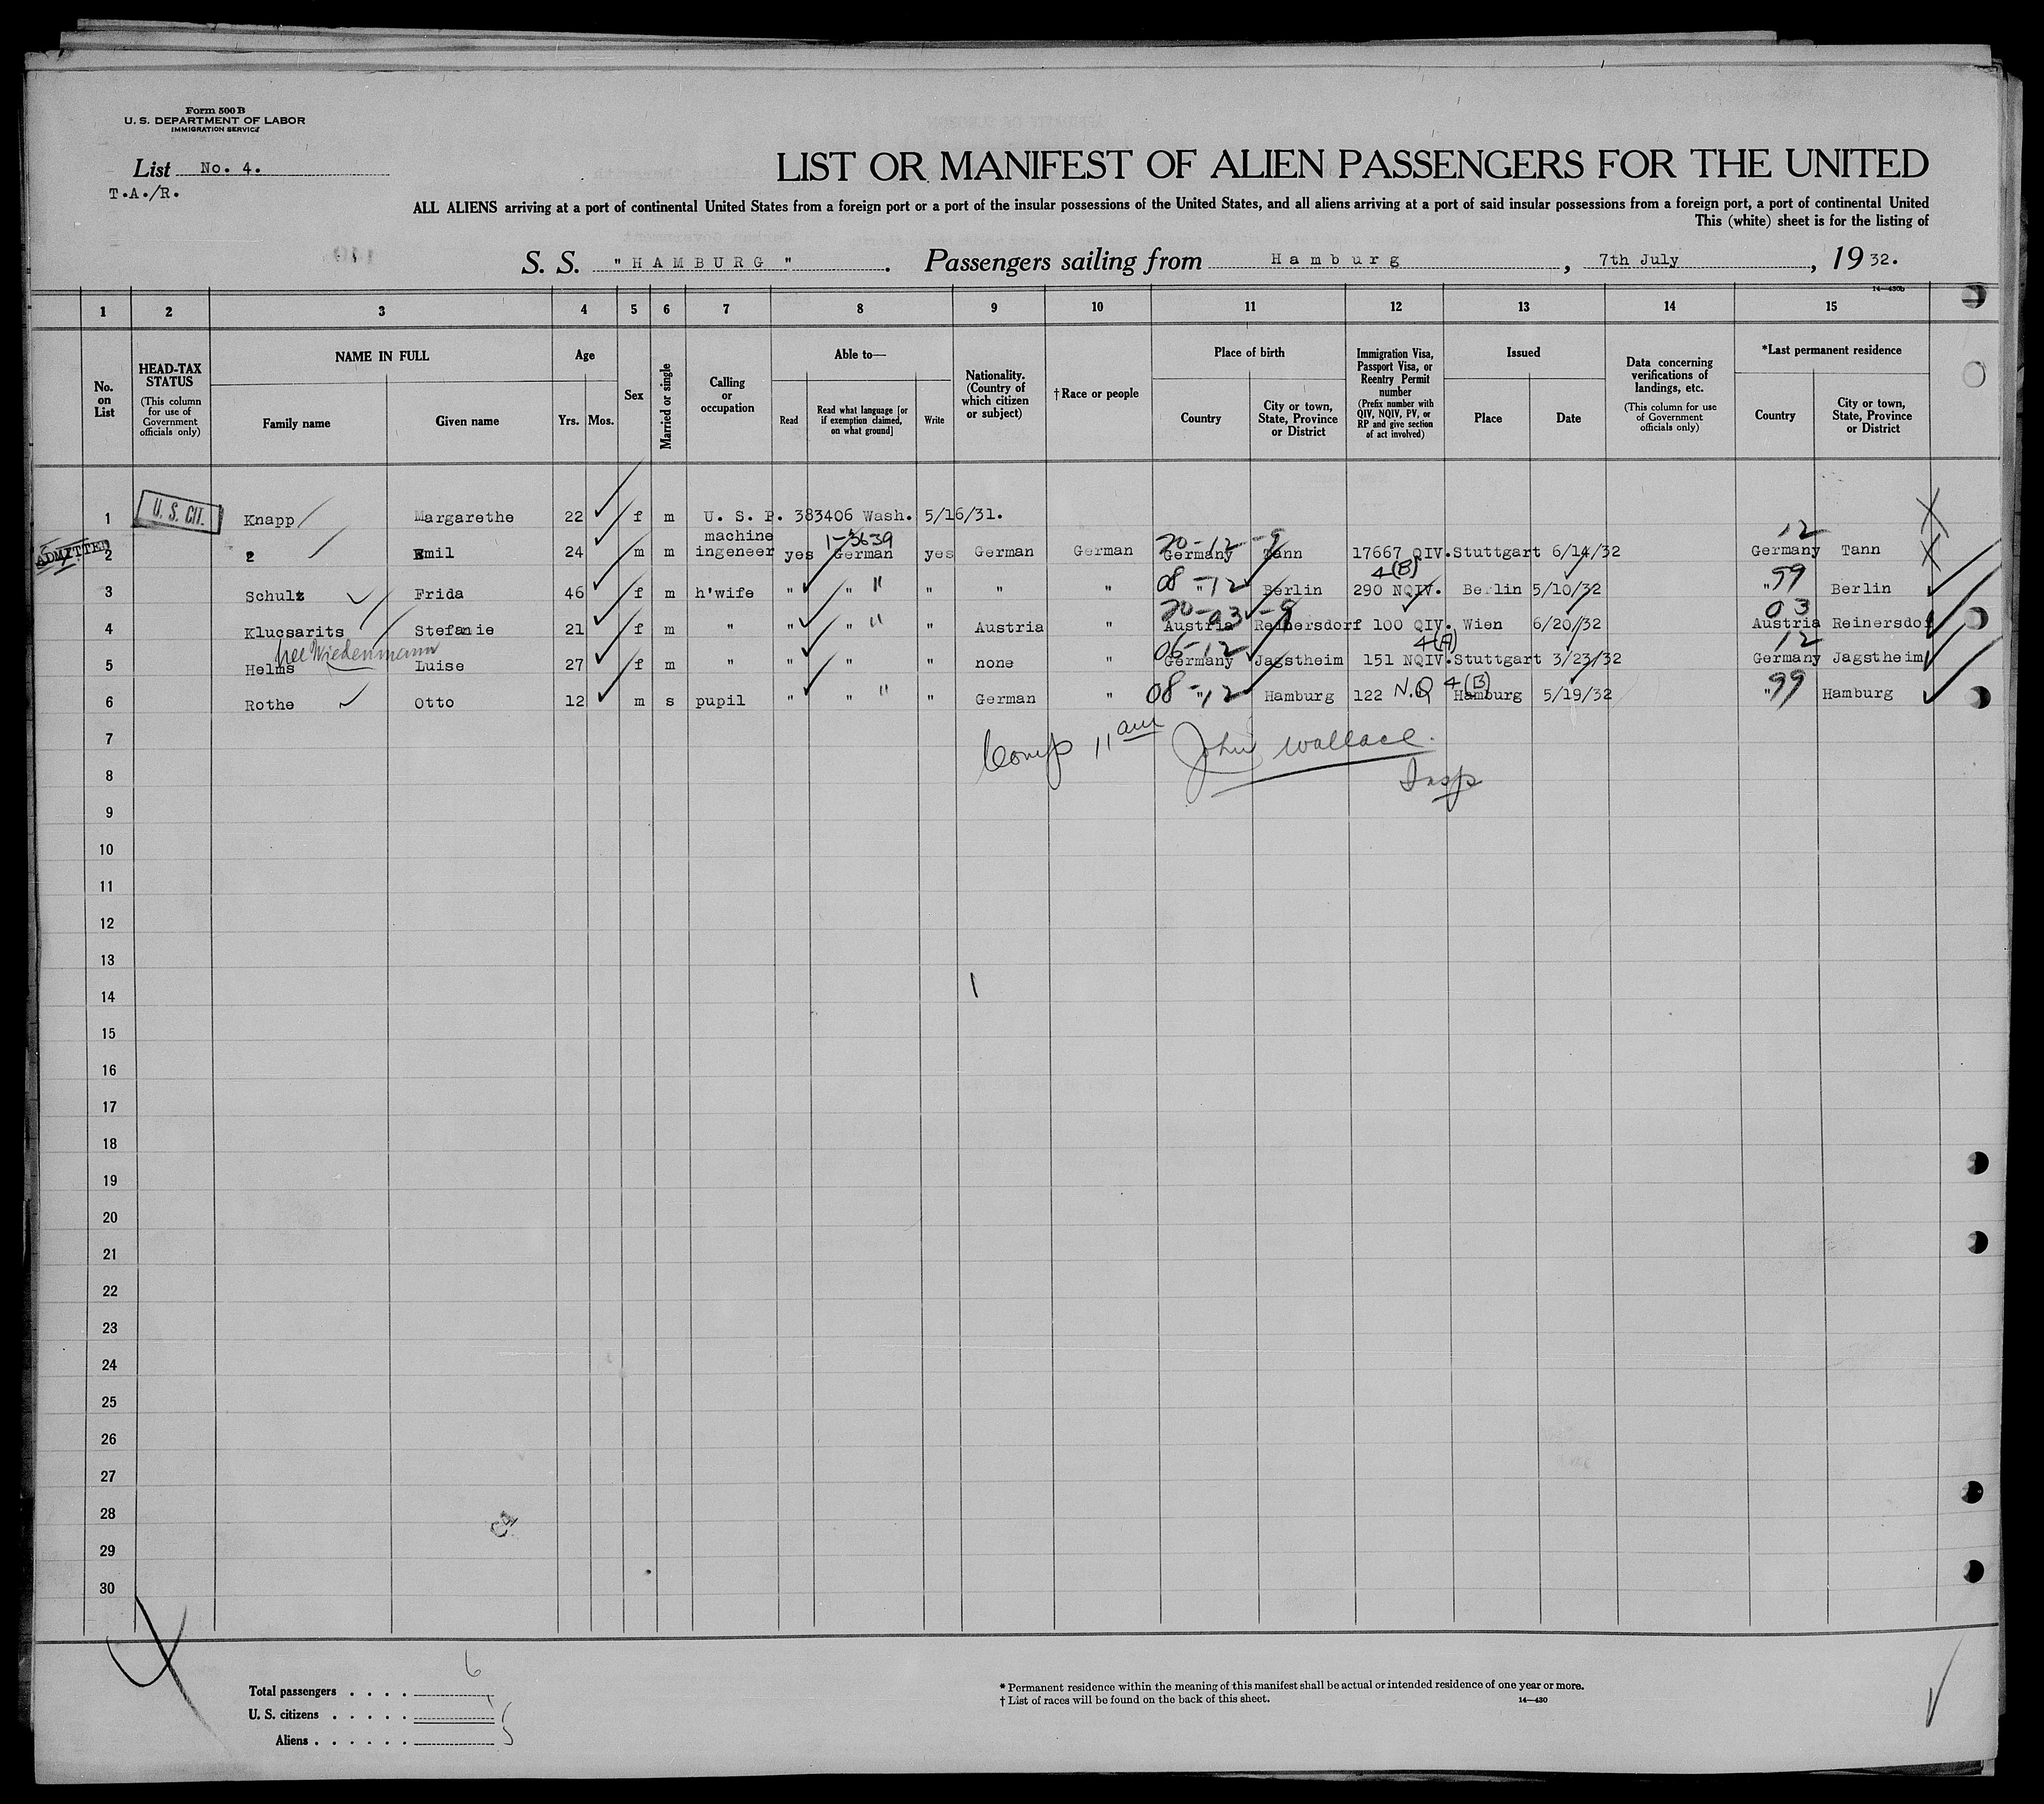 Form 500 B
U. S. DEPARTMENT OF LABOR
IMMIGRATION SERVICE
List No. 4.
T.A./R.
LIST OR MANIFEST OF ALIEN PASSENGERS FOR THE UNITED
ALL ALIENS arriving at a port of continental United States from a foreign port or a port of the insular possessions of the United States, and all aliens arriving at a port of said insular possessions from a foreign port, a port of continental United
This (white) sheet is for the listing of
S. S. "HAMBURG". Passengers sailing from Hamburg, 7th July, 1932.
14—430b
1 2 3 4 5 6 7 8 9 10 11 12 13 14 15
No. on List
HEAD-TAX STATUS (This column for use of Government officials only)
NAME IN FULL
Family name Given name
Age
Yrs. Mos.
Sex
Married or single
Calling or occupation
Able to—
Read
Read what language [or if exemption claimed, on what ground]
Write
Nationality. (Country of which citizen or subject)
†Race or people
Place of birth
Country
City or town, State, Province or District
Immigration Visa, Passport Visa, or Reentry Permit number (Prefix number with QIV, NQIV, PV, or RP and give section of act involved)
Issued
Place Date
Data concerning verifications of landings, etc. (This column for use of Government officials only)
*Last permanent residence
Country
City or town, State, Province or District
1 U. S. CIT. Knapp Margarethe 22 f m U. S. P. 383406 Wash. 5/16/31.
machine 1-3639 20-12-9 12
ADMITTED 2 Emil 24 m m ingeneer yes German yes German German Germany Tann 17667 QIV. Stuttgart 6/14/32 Germany Tann
08-12 4(B) 99
3 Schulz Frida 46 f m h'wife " " " " " " " Berlin 290 NQIV. Berlin 5/10/32 " Berlin
20-03-9 03
4 Klucsarits Stefanie 21 f m " " " " " Austria " Austria Reinersdorf 100 QIV. Wien 6/20/32 Austria Reinersdof
nee Wiedenmann 06-12 4(A) 12
5 Helms Luise 27 f m " " " " none " Germany Jagstheim 151 NQIV. Stuttgart 3/23/32 Germany Jagstheim
08-12 4(B) 99
6 Rothe Otto 12 m s pupil " " " " German " " Hamburg 122 N.Q Hamburg 5/19/32 " Hamburg
7 Comp 11 am John Wallace.
8 Insp
9
10
11
12
13
14
15
16
17
18
19
20
21
22
23
24
25
26
27
28
29
30
Total passengers . . . . 6
U. S. citizens . . . . . 1
Aliens . . . . . . 5
* Permanent residence within the meaning of this manifest shall be actual or intended residence of one year or more.
† List of races will be found on the back of this sheet.
14—430